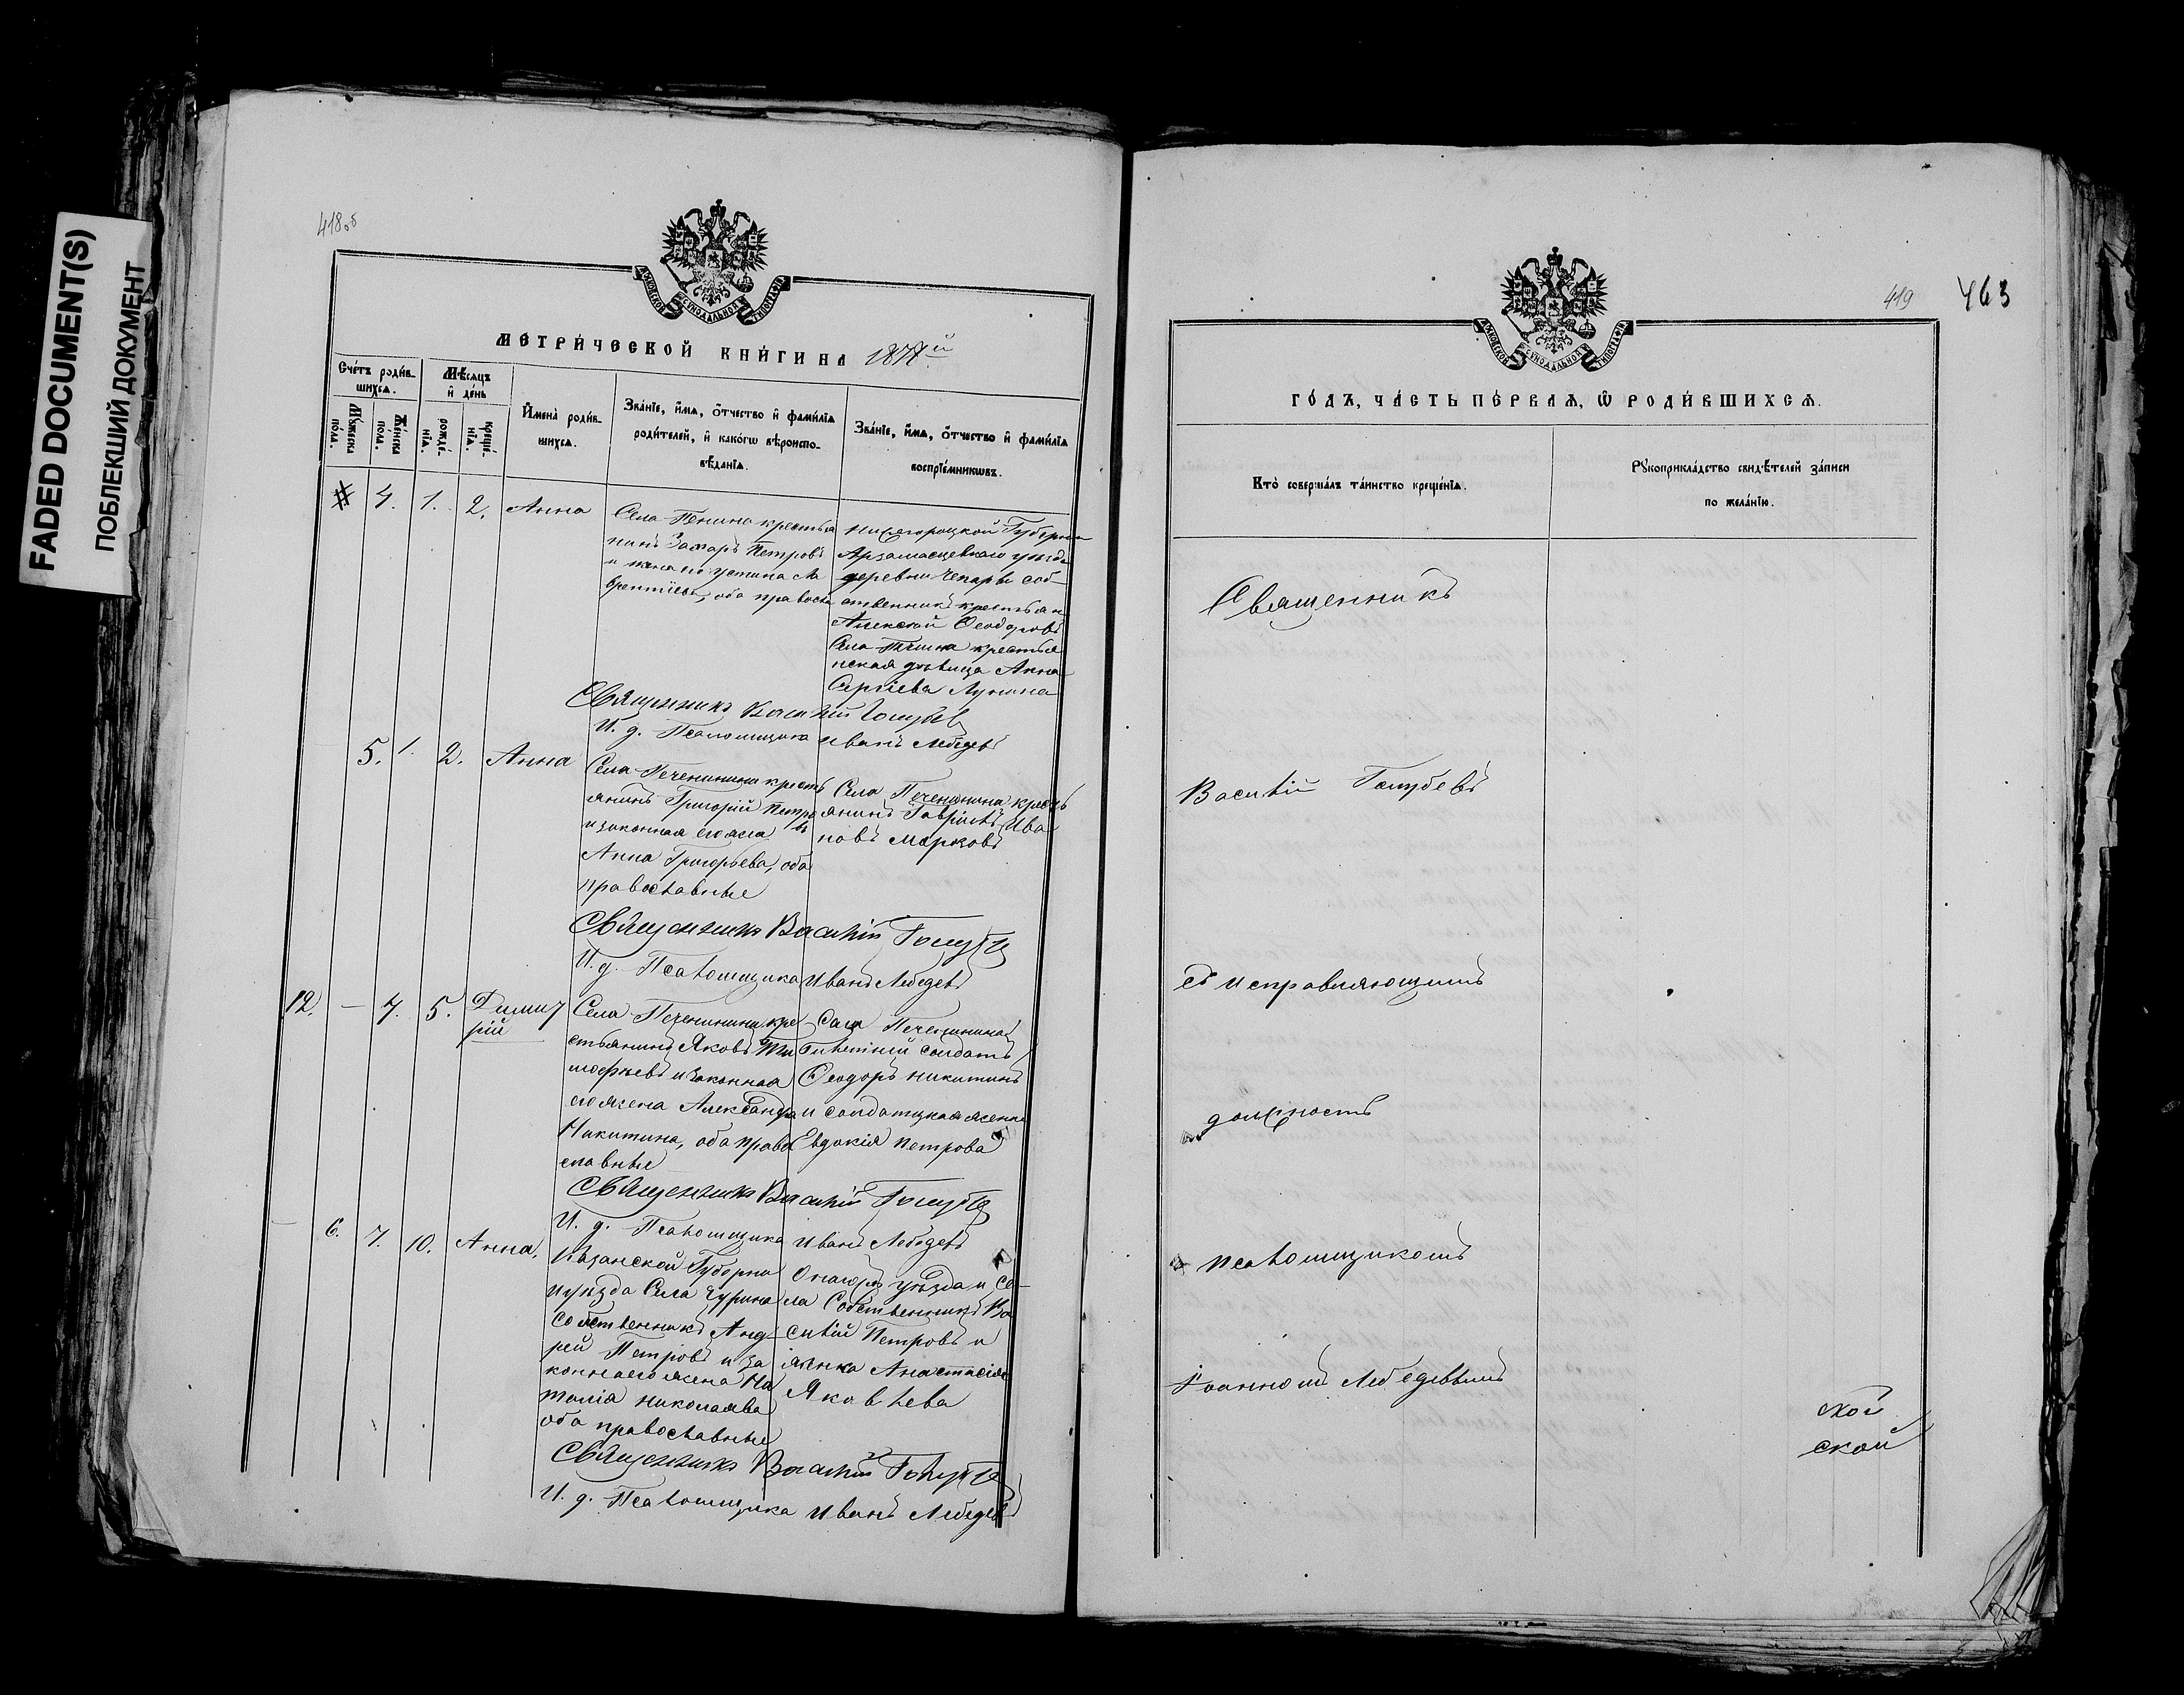 FADED DOCUMENT(S)
ПОБЛЕКШИЙ ДОКУМЕНТ
418об
МОСКОВСКОЙ СѴНОДАЛЬНОЙ ТИПОГРАФІИ
МЕТРИ́ЧЕСКОЙ КНИ́ГИ НА
Сче́тъ роди́в-
шихсѧ.
Мꙋ́жеска
по́ла.
Же́нска
по́ла.
Мѣ́сѧцъ
и҆ де́нь
рожде́-
нїѧ.
креще́-
нїѧ.
И҆мена̀ роди́в-
шихсѧ.
Зва́нїе, и҆́мѧ, ѻ҆́тчество и҆ фами́лїѧ
роди́телей, и҆ како́гѡ вѣроиспо-
вѣ́данїѧ.
Зва́нїе, и҆́мѧ, ѻ҆́тчество и҆ фами́лїѧ
воспрїе́мникѡвъ.
4. 1. 2. Анна
крестья
нинъ Захаръ Петровъ
и жена его Устина Ла
врентіева, оба правосла
Нижегороцкой Губерніи
уѣзда
деревни Чепары соб
ственникъ крестьян
Алексѣй Ѳеодоровъ
крестья
нская дѣвица Анна
Сергіева Лунина
Священникъ Василій Голубев
И. д. Псаломщика Иванъ Лебедевъ
5. 1. 2. Анна
Села Печенинина кресть
янинъ Григорій Петро
въ
и законная его жена
Анна Григорьева, оба
православные
Села Печенинина кресть
янинъ Гавріилъ Ива
новъ Марковъ
Священникъ Василій Голубев
И. д. Псаломщика Иванъ Лебедевъ
12. — 4. 5. Димит
рій
Села Печенинина кре
стьянинъ Яковъ Ти
мофѣевъ и законная
его жена Александра
Никитина, оба право
славные
Села Печенинина
билетный солдатъ
Ѳеодоръ Никитинъ
и солдатская жена
Евдокія Петрова
Священникъ Василій Голубев
И. д. Псаломщика Иванъ Лебедевъ
— 6. 7. 10. Анна.
Казанской Губерни
и уѣзда Села Чурина
Собственникъ Анд
рей Петровъ и за
конная его жена На
талія Николаева
оба православные
Онагожъ уѣзда и се
ла Собственникъ Ва
силій Петровъ и
Анастасія
Яковлева
Священникъ Василій Голубев
И. д. Псаломщика Иванъ Лебедевъ
419 463
МОСКОВСКОЙ СѴНОДАЛЬНОЙ ТИПОГРАФІИ
ГО́ДЪ, ЧА́СТЬ ПЕ́РВАѦ, Ѽ РОДИ́ВШИХСѦ.
Кто̀ соверша́лъ та́инство креще́нїѧ.
Рꙋкоприкла́дство свидѣ́телей за́писи
по жела́нїю.
Священникъ
Василій Голубевъ
съ исправляющимъ
должность
псаломщикомъ
Іоанномъ Лебедевымъ
ской
ской